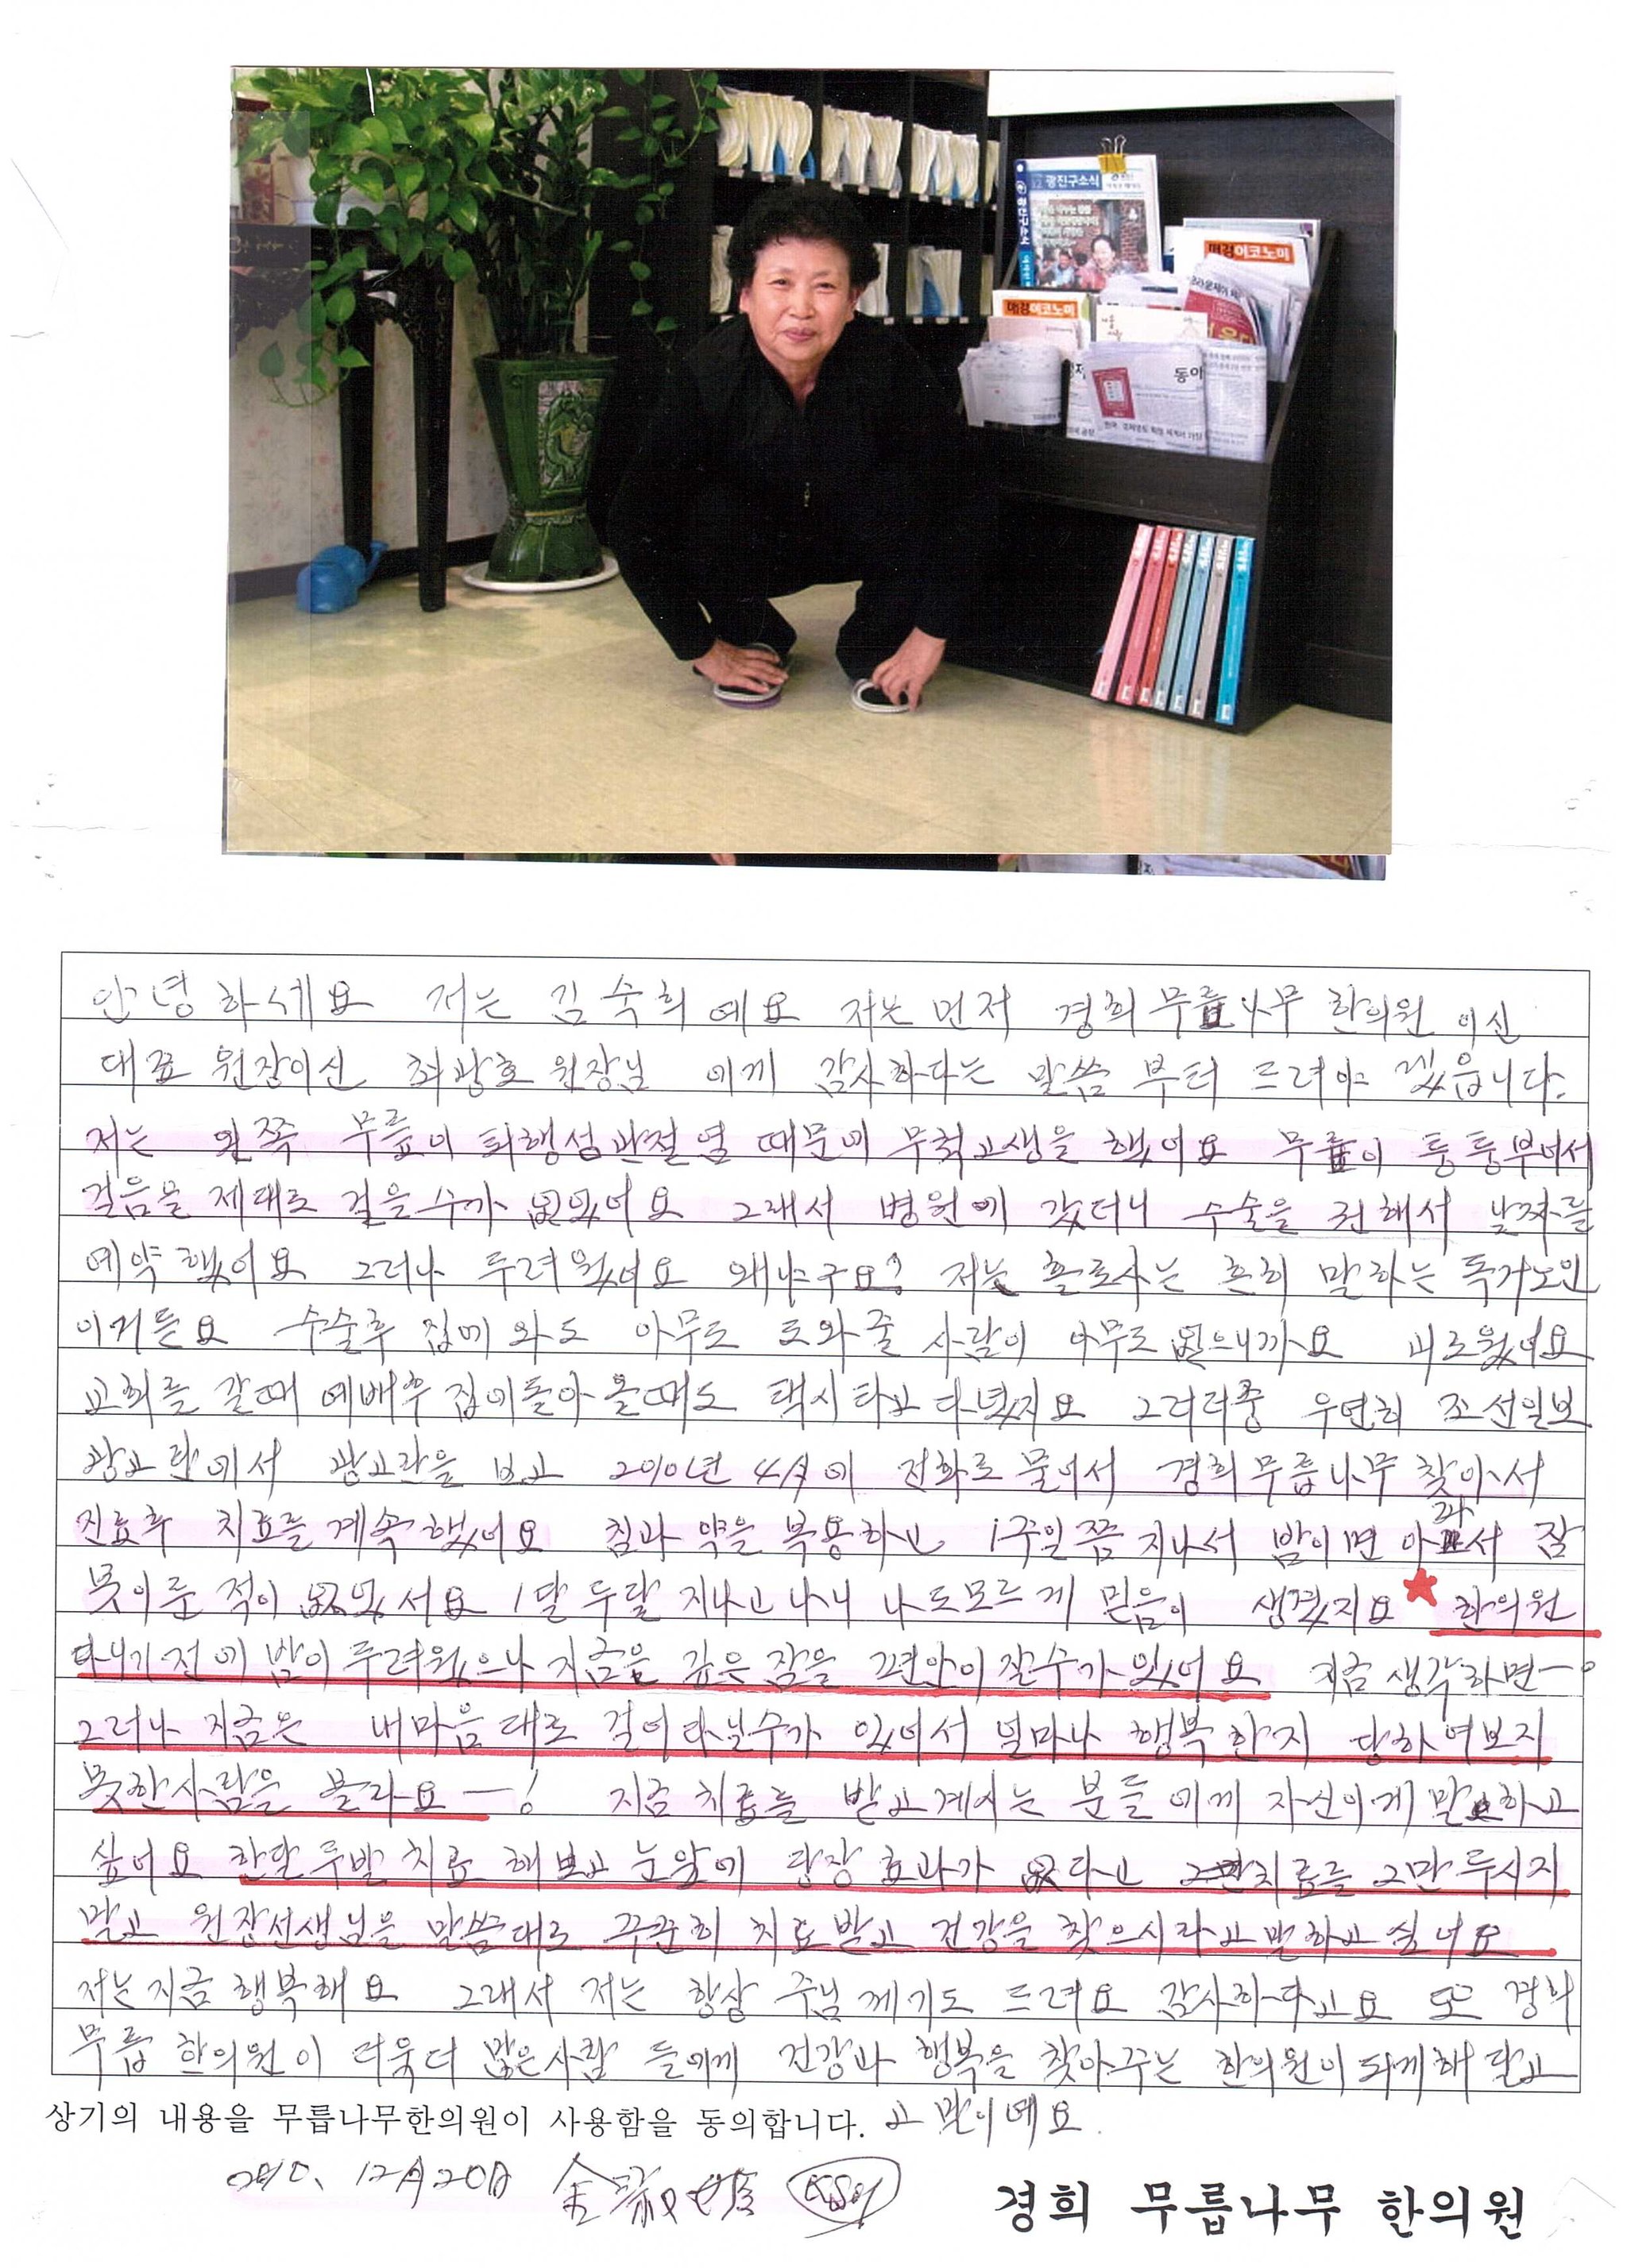 광진구소식
매경이코노미
매경이코노미
동아
안녕하세요 저는 김숙희예요 저는 먼저 경희무릎나무 한의원 이신
대표 원장이신 최광호 원장님 에께 감사하다는 말씀 부터 드려야 겠읍니다.
저는 왼쪽 무릎이 퇴행성관절염 때문에 무척고생을 했어요 무릎이 퉁퉁부어서
걸음을 제대로 걸을수가 없었어요 그래서 병원에 갔더니 수술을 권해서 날짜를
예약했어요 그러나 두려웠어요 왜냐구요? 저는 홀로사는 흔히 말하는 독거노인
이거든요 수술후 집에 와도 아무도 도와줄 사람이 아무도 없으니까요 괴로웠어요
교회를 갈때 예배후 집이돌아 올때도 택시타고 다녔지요 그러더중 우연히 조선일보
광고란에서 광고란을 보고 2010년 4月에 전화로 물어서 경희무릎나무 찾아서
진료후 치료를 계속했어요 침과 약을 복용하고 1주일쯤 지나서 밤이면 아파서 잘
못이룬 적이 없었서요 1달 두달 지나고나니 나도모르게 믿음이 생겼지요 ★ 한의원
다니기 전에 밤이 두려웠으나 지금은 깊은 잠을 편안이 잘수가 있어요 지금 생각하면—○
그러나 지금은 내마음대로 걸어다닐수가 있어서 얼마나 행복한지 당하여보지
못한사람은 몰라요—! 지금 치료를 받고계시는 분들에게 자신이게 말하고
싶어요 한달 두발 치료 해보고 눈앞에 당장 효과가 없다고 치료를 그만 두시지
말고 원장선생님을 말씀대로 꾸준히 치료받고 건강을 찾으시라고 말하고 싶어요
저는지금 행복해요 그래서 저는 항상 주님께기도 드려요 감사하다고요 또 경희
무릎 한의원이 더욱더 많은사람 들에께 건강과 행복을 찾아주는 한의원이 되게해 달고
상기의 내용을 무릎나무한의원이 사용함을 동의합니다. 고 말이예요.
2010. 12月20日 金淑姬
경희 무릎나무 한의원